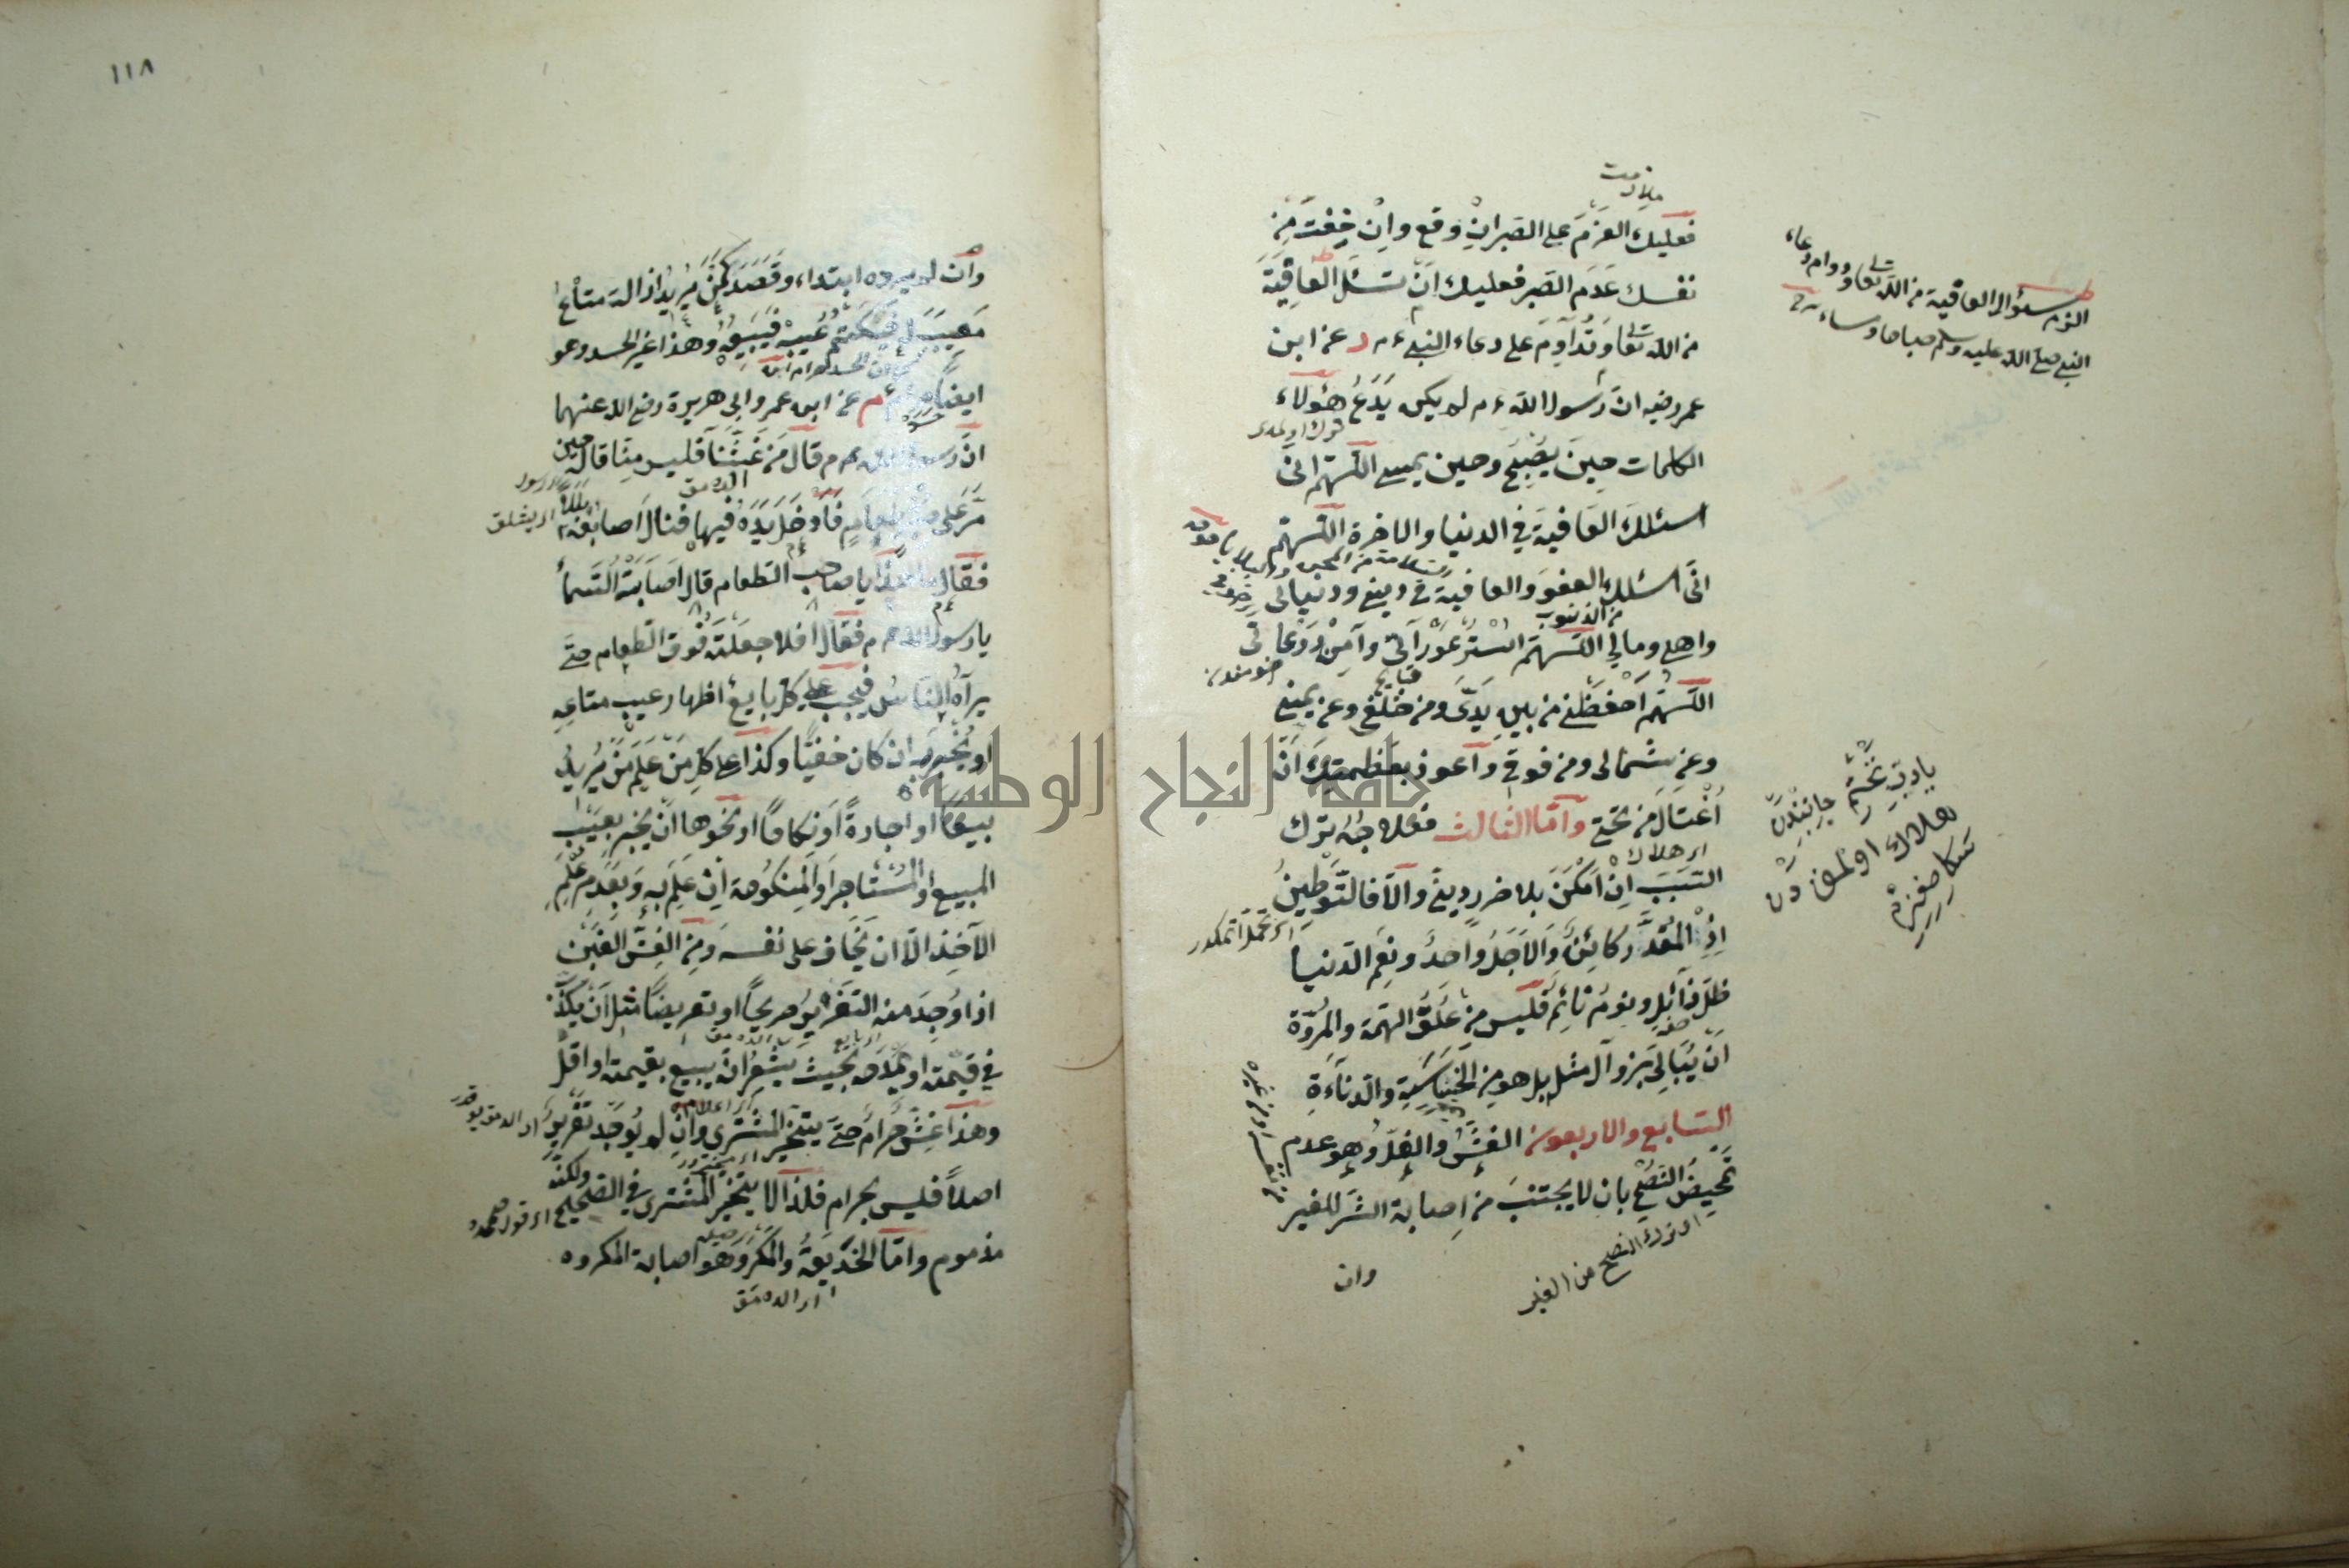 ملازمت
فعليك العزم على الصبر ان وقع وان خفت من
نفسك عدم الصبر فعليك ان تسئل العافية
من الله تعا وتداوم على دعاء النبي ءم د عن ابن
عمر رضيه ان رسول الله ءم لم يكن يدع هؤلاء
الكلمات حين يصبح وحين يمسي اللهم اني
اسئلك العافية في الدنيا والاخرة اللهم
اني اسئلك العفو والعافية في ديني ودنياى
من الذنوب
واهلي ومالي اللهم استر عوراتي وآمن روعاتي
اللهم احفظني من بين يدى ومن خلفي وعن يميني
وعن شمالى ومن فوقي وآعوذ بعظمتك ان
أغتال من تحتي وآما الثالث فعلاجه بترك
السبب ان امكن بلا ضرر ديني والا فالتوطين
اذ المقدر كائن والاجل واحد ونعم الدنيا
ظل زائل ونوم نائم فليس من علو الهمة والمروة
ان يبالى بزوال مثله بل هو من الخساسة والدناءة
السابع والاربعون الغش والغل وهو عدم
تمحيض النصح بان لا يجتنب من اصابة الشر للغير
او ترك النصح من الغير
وان
الزم سؤال العافية من الله تعا ودوام دعاء
النبي صلى الله عليه وسلم صباحا ومساء
هلاك اولمقدن
جامعة النجاح الوطنية
١١٨
وان لم يرده ابتداء وقصد كمن يريد ازالة متاع
معيب له فيكتم عيبه فيبيعه وهذا غير الحسد وهو
ايضا حرام م عن ابن عمر وابى هريرة رضي الله عنهما
ان رسول الله ءم قال من غشنا فليس منا قاله حين
مر على طعام فادخل يده فيها فنال اصابعه بللا
فقال ما هذا يا صاحب الطعام قال اصابته السماء
يا رسول الله ءم فقال افلا جعلته فوق الطعام حتى
يرآه الناس فيجب على كل بايع اظهار عيب متاعه
او يخبر به ان كان خفيا وكذا على كل من علم من يريد
بيعا او اجارة او نكاحا او نحوها ان يخبر بعيب
المبيع او المستاجر او المنكوحة ان علم به وبعدم علم
الآخذ الا ان يخاف على نفسه ومن الغش الغبن
اذا وجد منه التغرير صريحا او تعريضا مثل ان يكذب
في قيمته او يمدحه بحيث يشعر انه يبيع بقيمته او اقل
وهذا غش حرام حتى يتخير المشتري وان لم يوجد تغرير
اصلا فليس بحرام فلذا لا يتخير المشترى في الصحيح ولكنه
مذموم واما الخديعة والمكر وهو اصابة المكروه